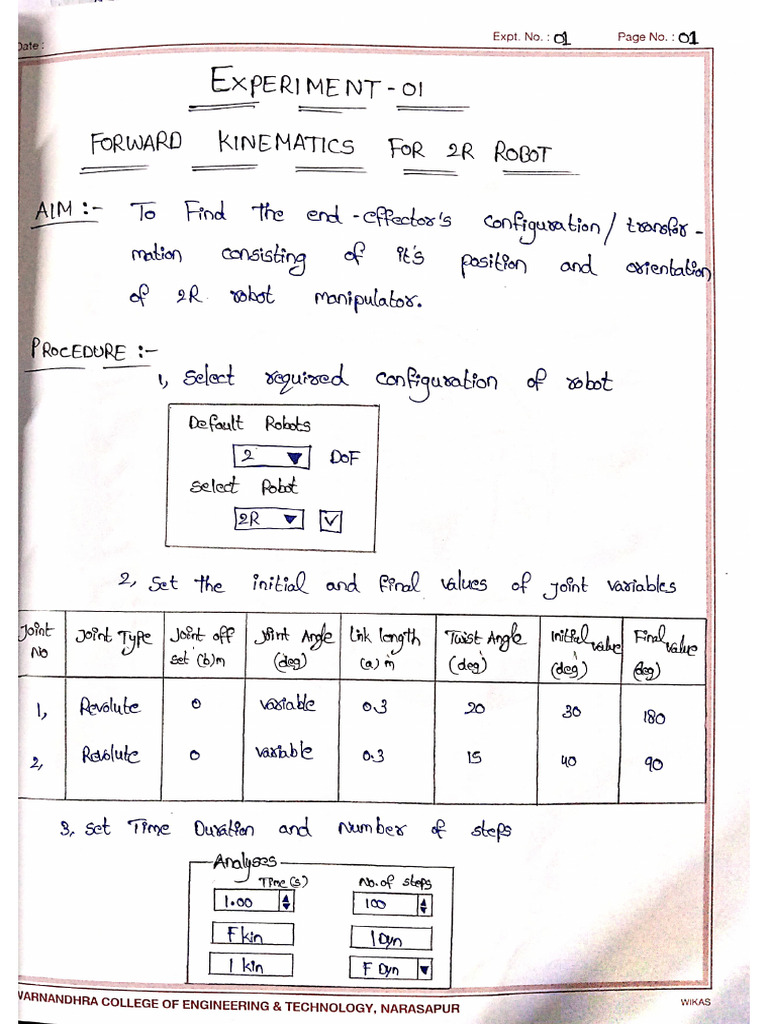 Date :
Expt. No. : 01
Page No. : 01
EXPERIMENT-01
FORWARD KINEMATICS FOR 2R ROBOT
AIM :- To Find the end-effector's configuration/transfor-
mation consisting of it's position and orientation
of 2R robot manipulator.
PROCEDURE :-
1, select required configuration of robot
Default Robots
2 DoF
select Robot
2R
2, set the initial and final values of joint variables
Joint No | Joint Type | Joint off set (b)m | Joint Angle (deg) | Link length (a) m | Twist Angle (deg) | Initial value (deg) | Final value (deg)
1, | Revolute | 0 | variable | 0.3 | 20 | 30 | 180
2, | Revolute | 0 | variable | 0.3 | 15 | 40 | 90
3, set Time Duration and Number of steps
Analyses
Time (s) No. of steps
1.00 100
F kin I Dyn
I kin F Dyn
WARNANDHRA COLLEGE OF ENGINEERING & TECHNOLOGY, NARASAPUR
WIKAS